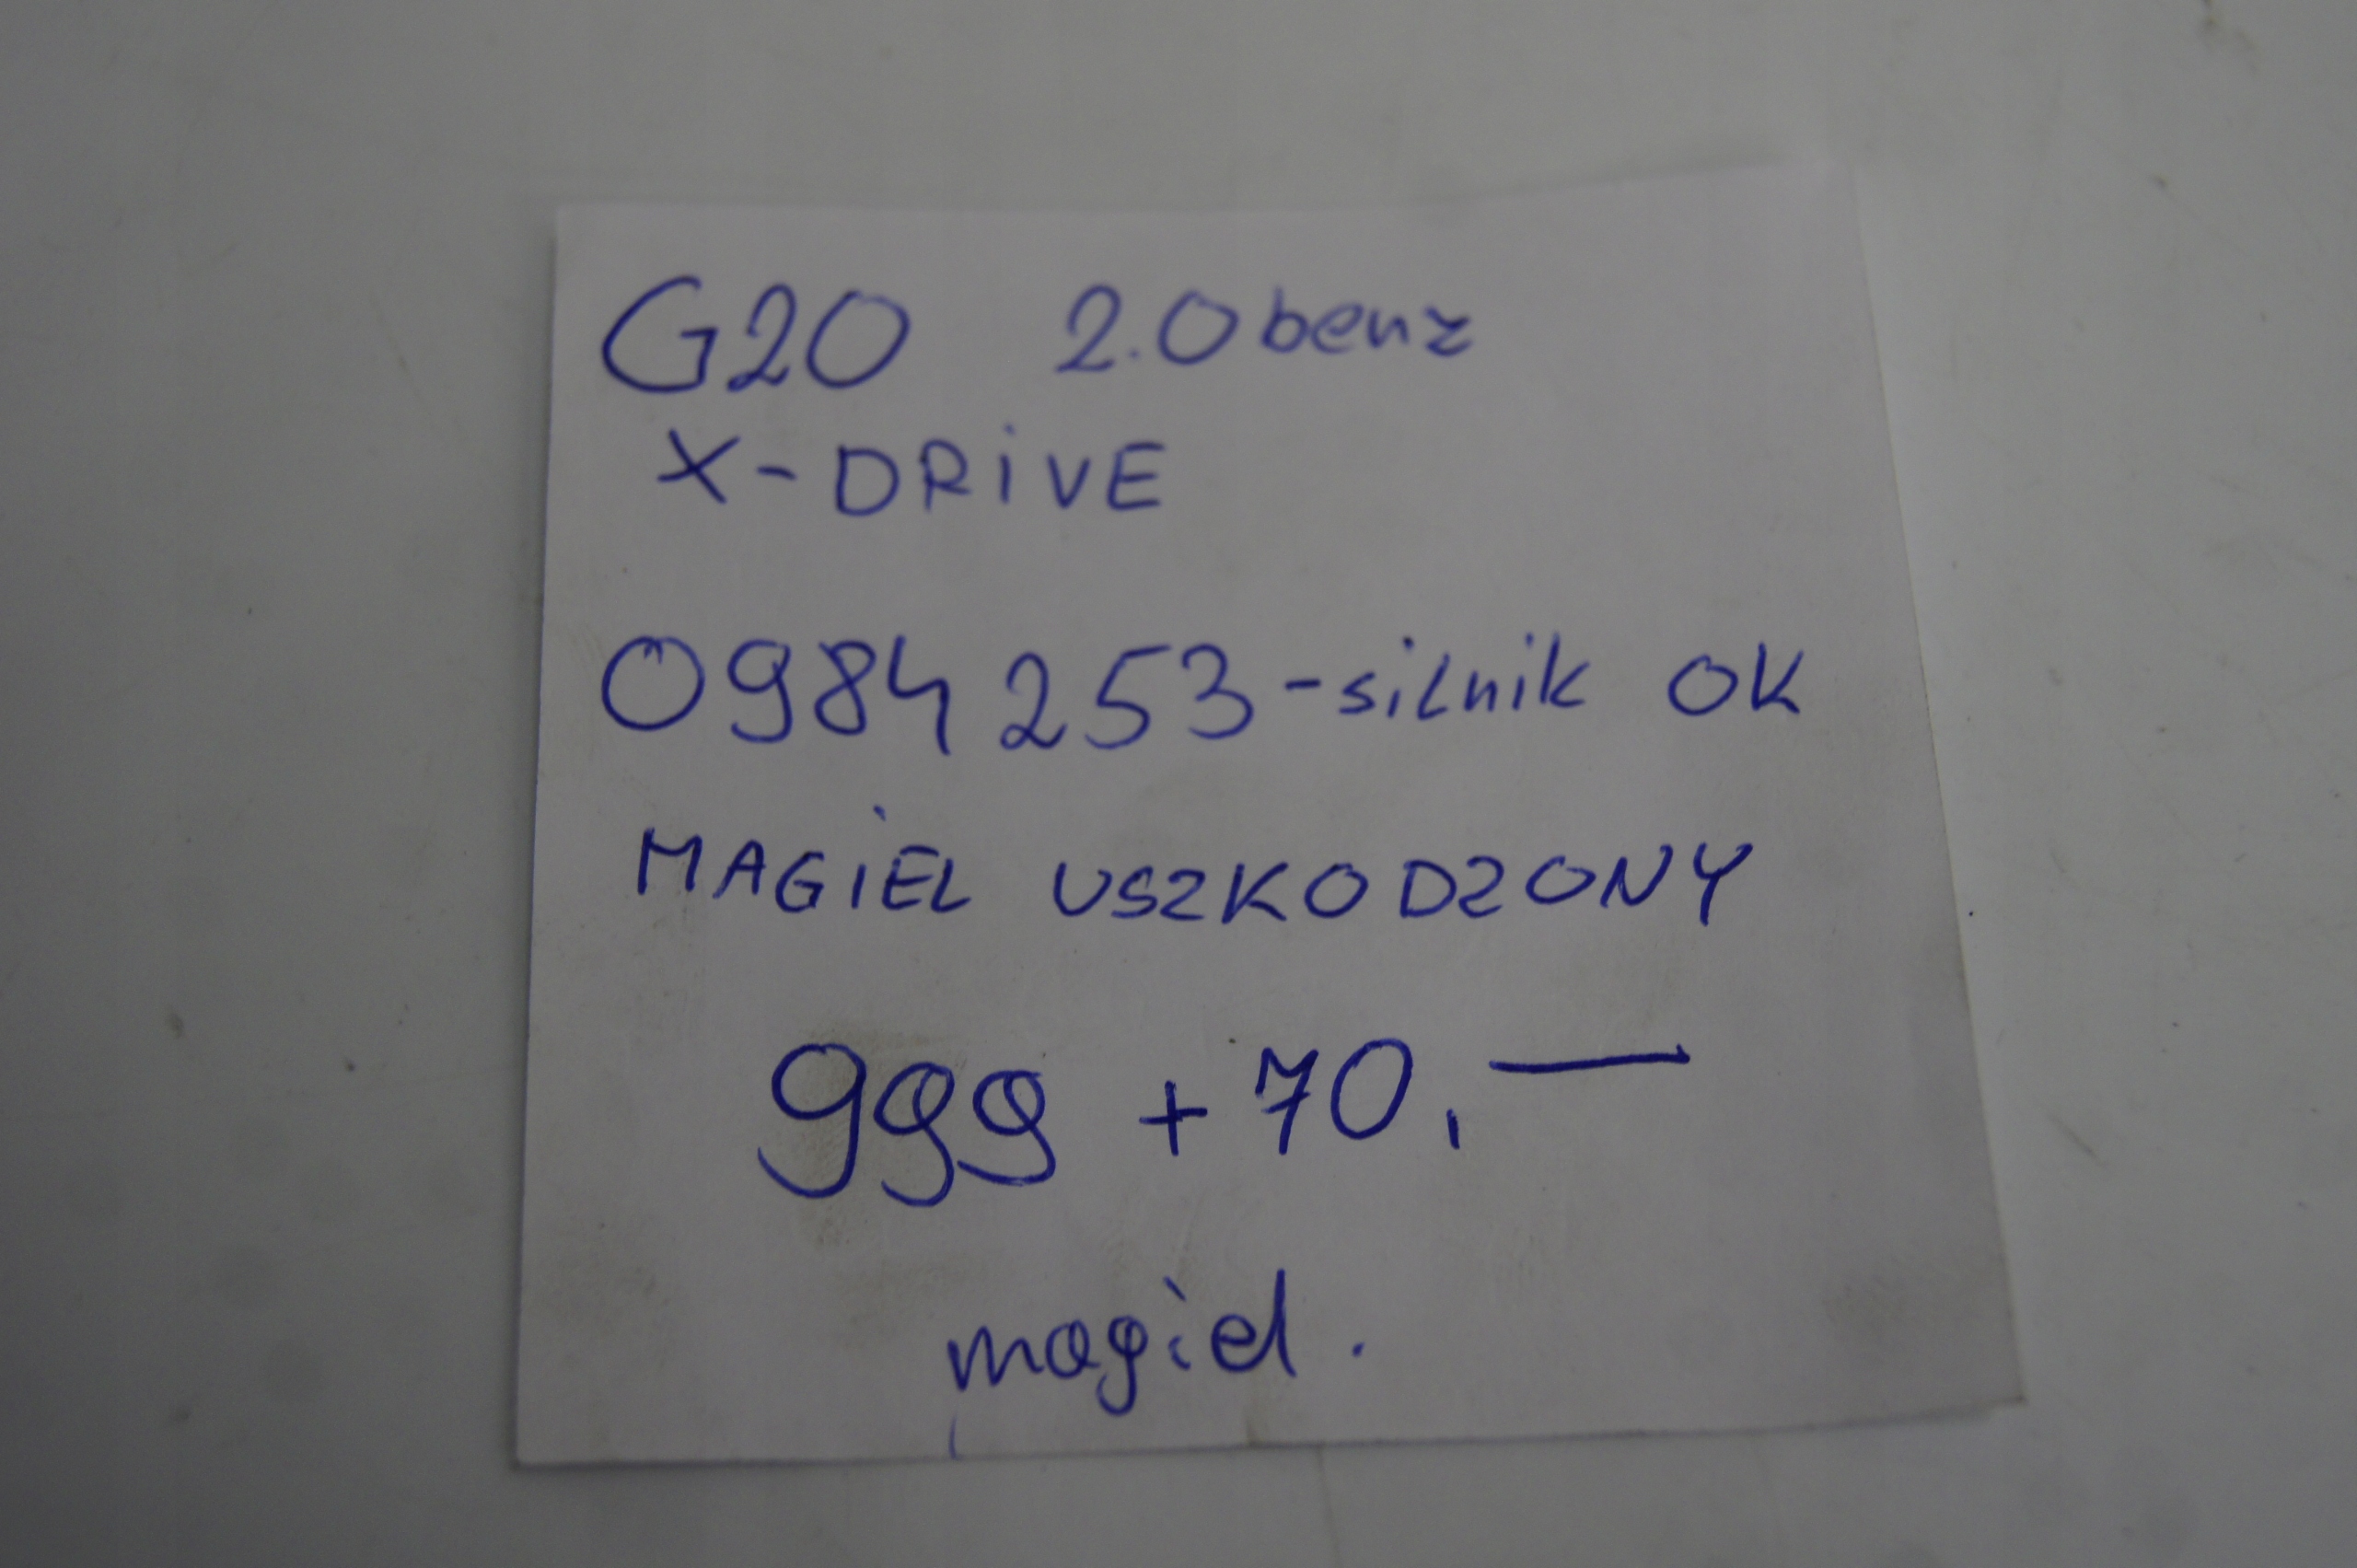 G20 2.0 benz
X-DRiVE
0984 253 - silnik OK
MAGiEL USZKODZONY
999 + 70,—
magiel.